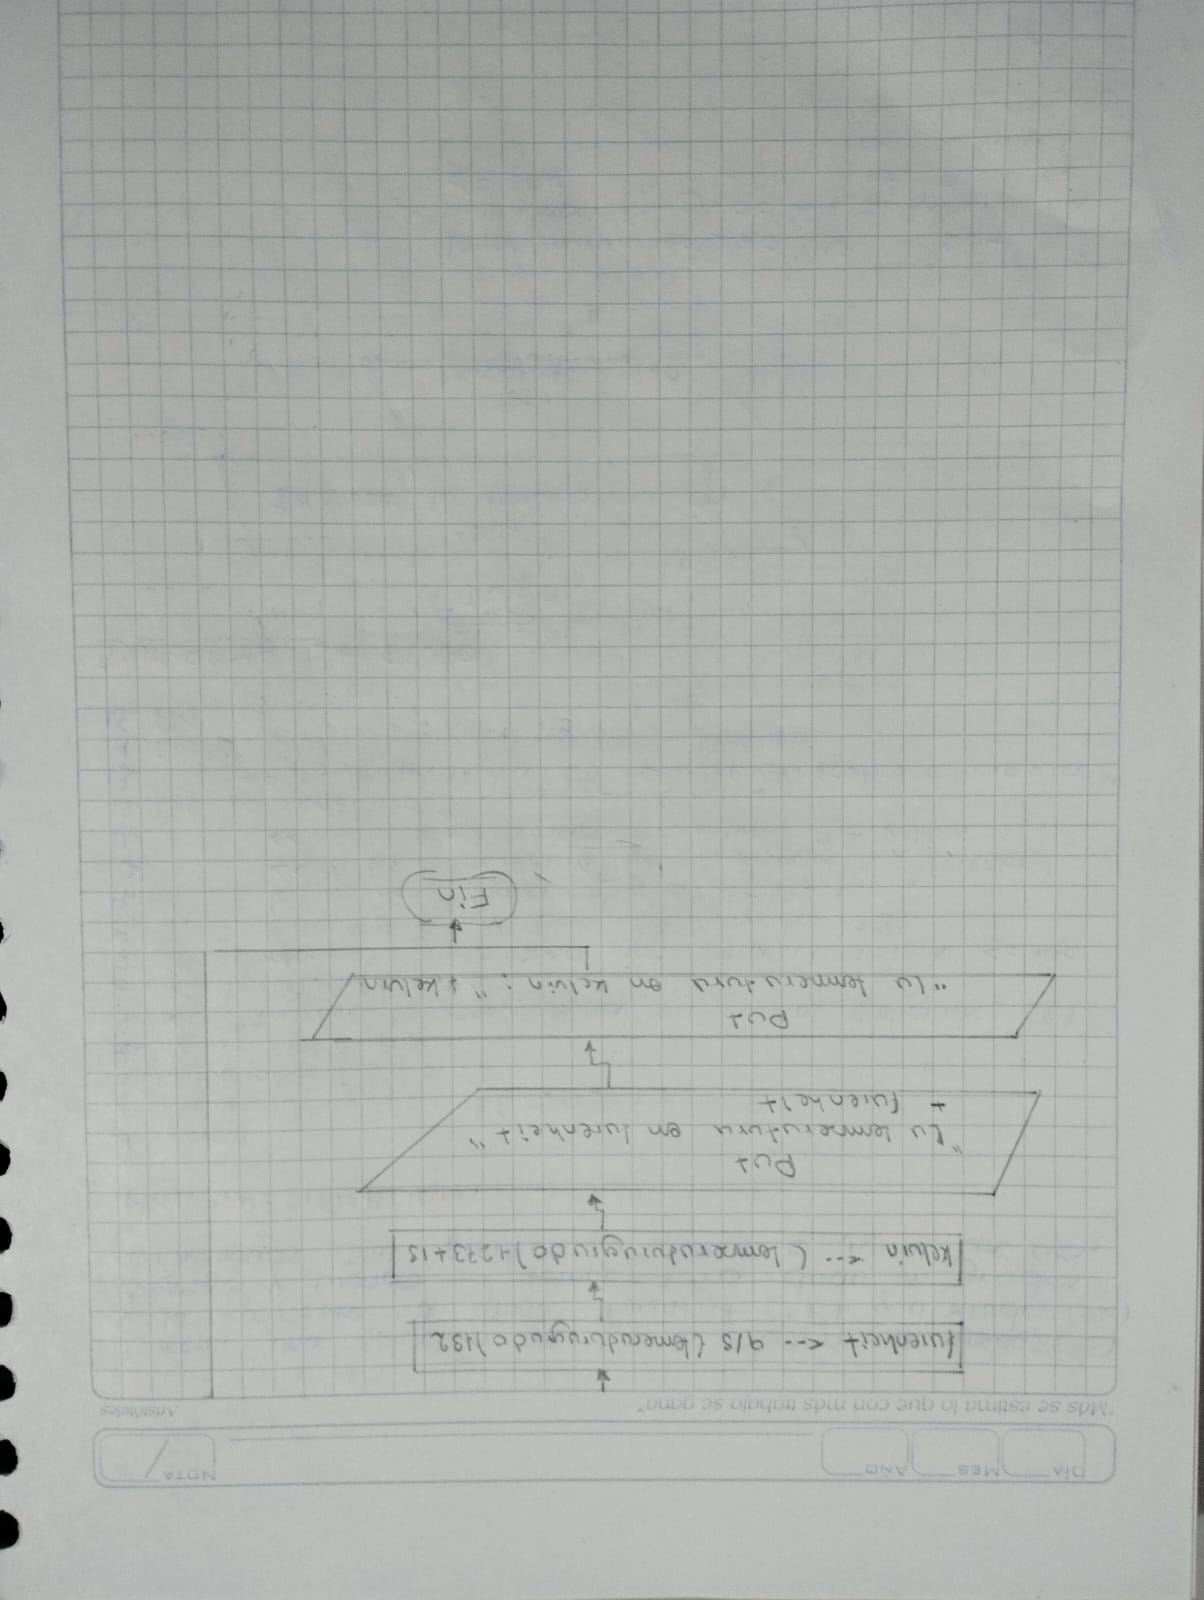 DÍA MES AÑO NOTA
"Más se estima lo que con más trabajo se gana" Aristóteles
farenheit <-- 9/5 (temeraduragrado)+32
kelvin <-- (temperaturagrado)+273+15
Put
"La temperatura en farenheit"
+ farenheit
Put
"La temperatura en kelvin: "+kelvin
Fin